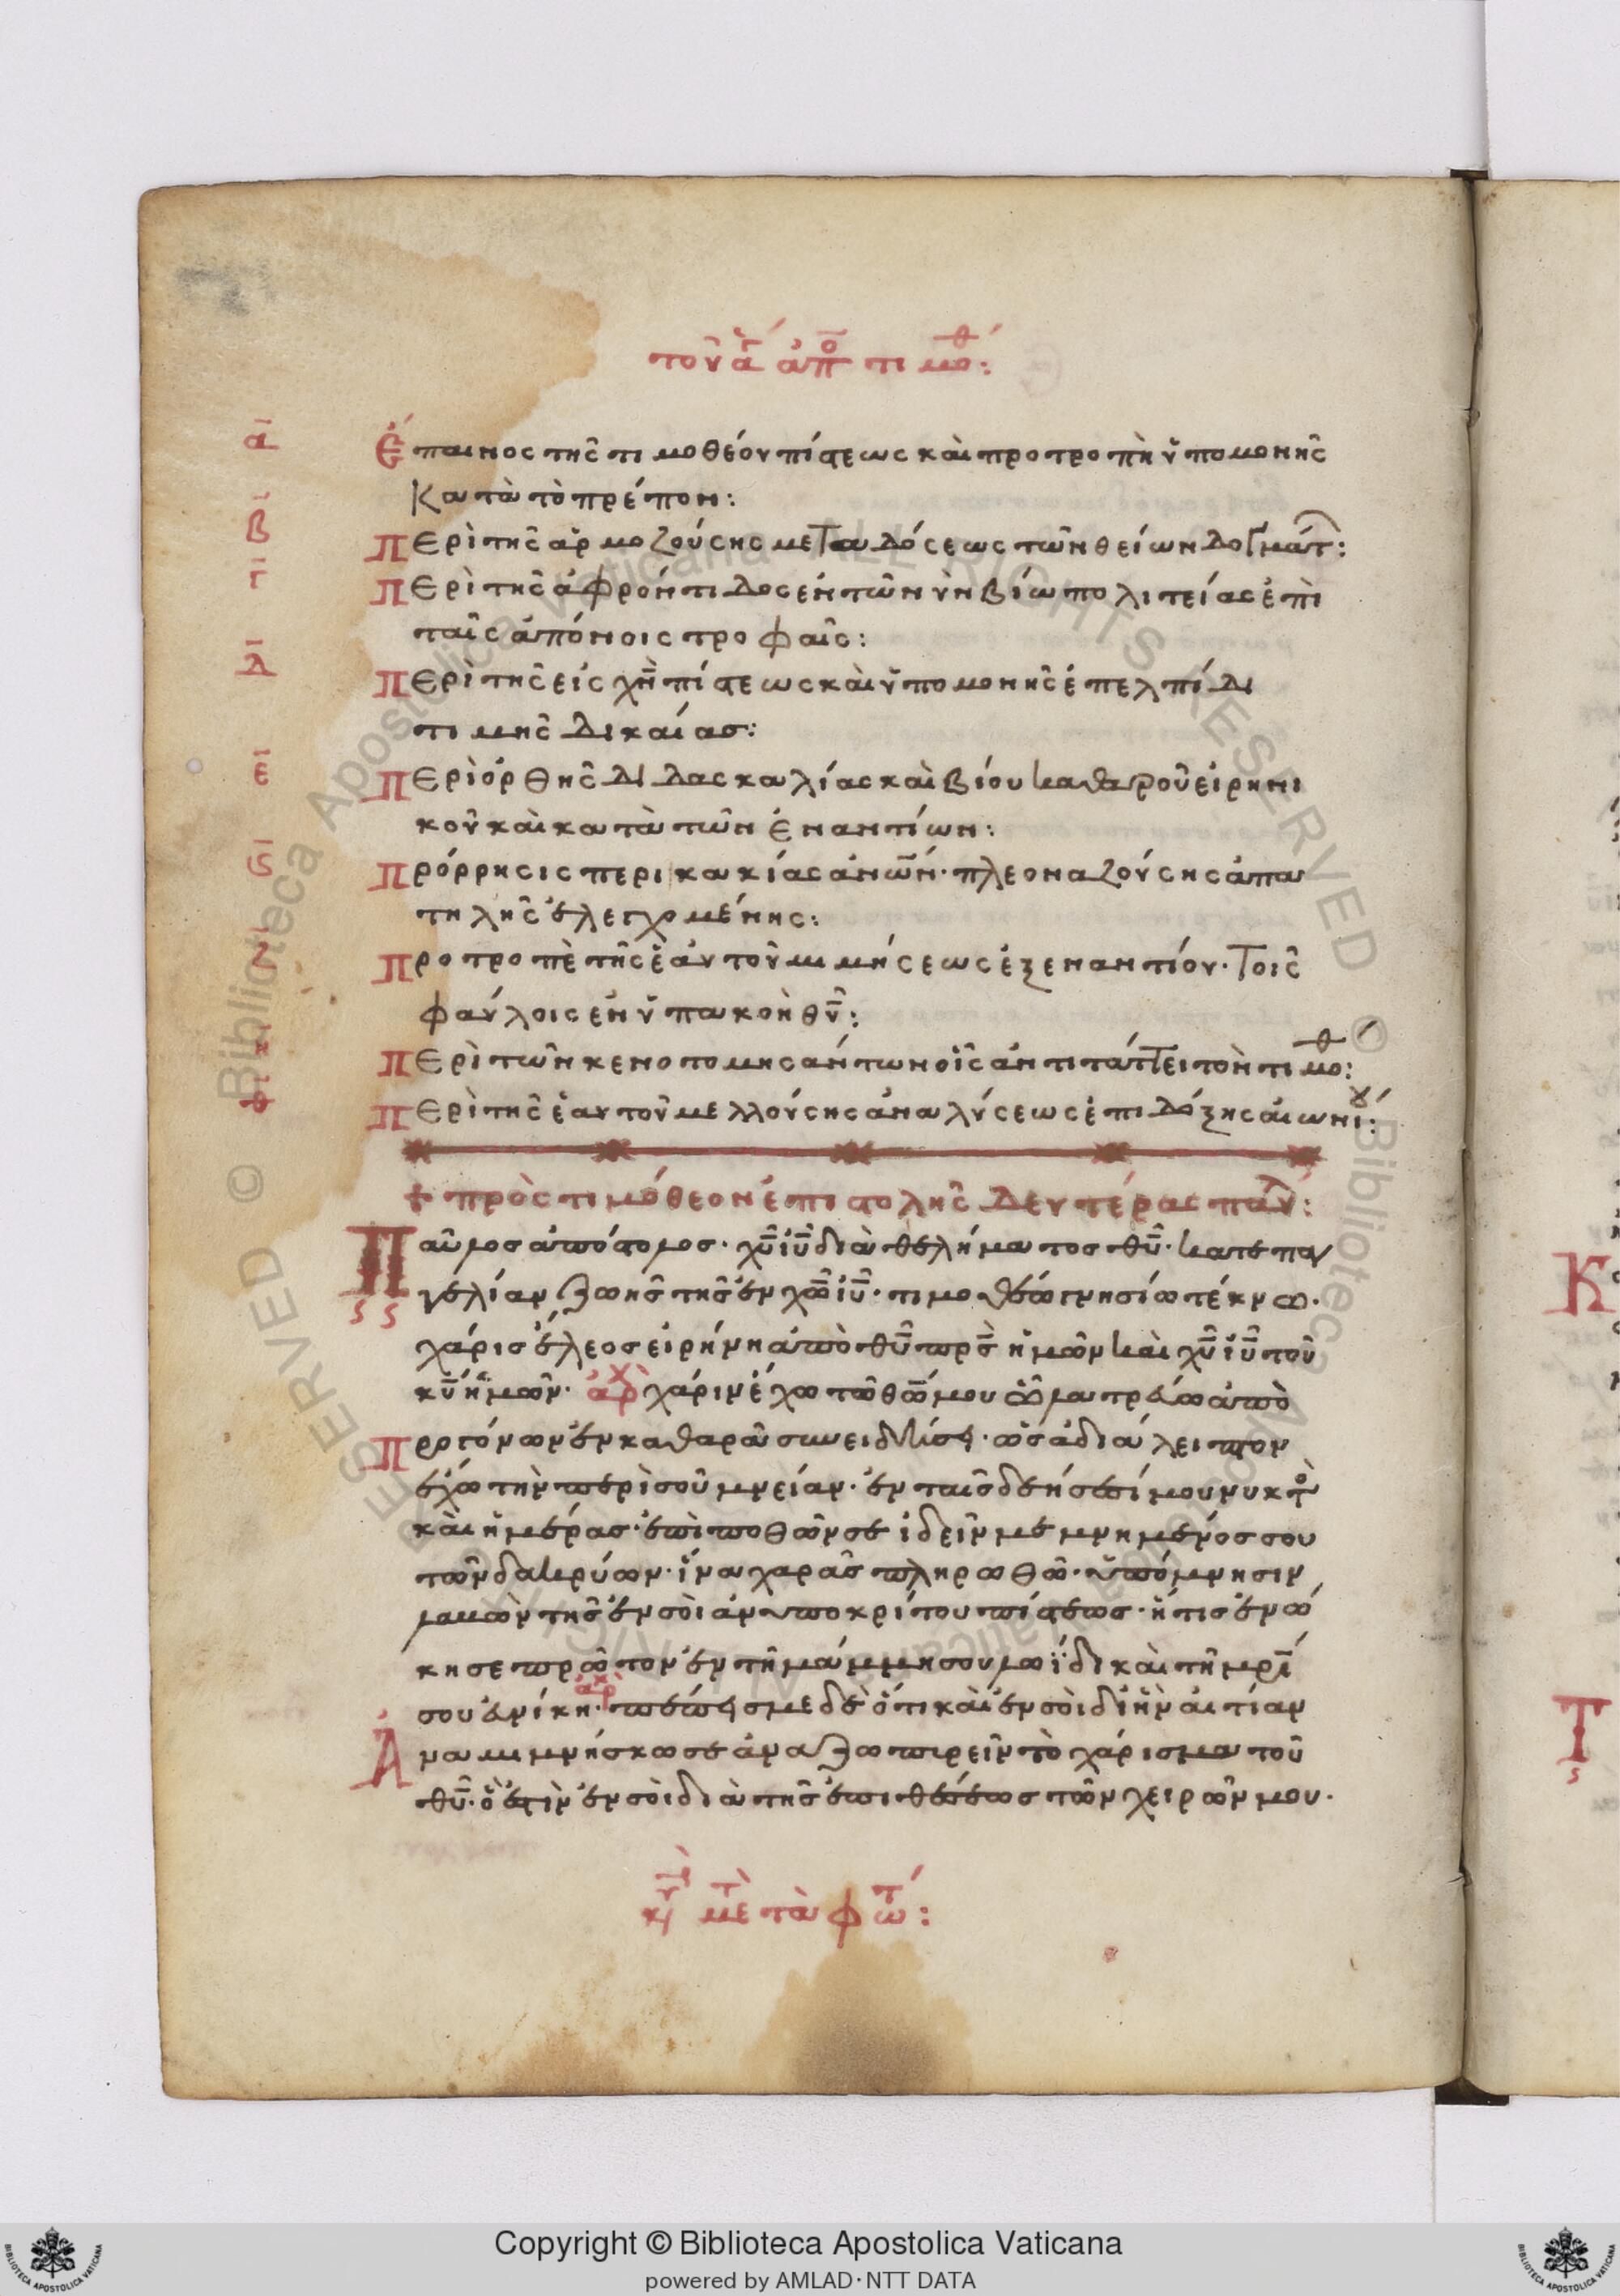 τοῦ α ἀπο τιμοθ:
α Ἔπαινος τῆς τιμοθέου πίστεως καὶ προτροπὴ ὑπομονῆς
Κατὰ τὸ πρέπον:
β ΠΕρὶ τῆς ἁρμοζούσης μεταδόσεως τῶν θείων δογμάτ:
γ ΠΕρὶ τῆς ἀφρόντιδος ἐν τῶν ὑν βίω πολιτείας ἐπὶ
ταῖς ἀπόνοις τροφαῖς:
δ ΠΕρὶ τῆς εἰς χν πίστεως καὶ ὑπομονῆς ἐπελπίδι
τιμῆς δικαίας:
ε ΠΕρὶ ὀρθῆς διδασκαλίας καὶ βίου καθαροῦ εἰρηνι
κοῦ καὶ κατὰ τῶν ἐναντίων:
ϛ Πρόρρησις περι κακίας ἀνων· πλεοναζούσης ἀπα
τηλῆς ἐλεγχομένης:
ζ Προτροπὲ τῆς ἑαυτοῦ μιμήσεως ἐξεναντίου· Τοῖς
φαύλοις ἐν ὑπακοὴ θυ:
η ΠΕρὶ τῶν κενοτομησάντων οἷς ἀντιτάττει τὸν τιμοθ:
θ ΠΕρὶ τῆς ἑαυτοῦ μελλούσης ἀναλύσεως ἐπι δόξης αἰωνίου:
+ πρὸς τιμόθεον ἐπιστολῆς Δευτέρας παύλ:
Παῦλος ἀπόστολος· χυ ιυ διὰ θελήματος θυ· κατεπαγ
γελίαν ζωῆς τῆς ἐν χω ιυ· τιμοθέω γνησίω τέκνω·
χάρις ἔλεος εἰρήνη ἀπὸ θυ πρς ἡμῶν καὶ χυ ιυ τοῦ
κυ ἡμῶν· ἀρχ χάριν ἔχω τῶ θω μου ὧ λατρεύω ἀπὸ
Προγόνων ἐν καθαρᾶ συνειδήσει· ὡς ἀδιάλειπτον
ἔχω τὴν περὶ σοῦ μνείαν· ἐν ταῖς δεήσεσί μου νυκτὸς
καὶ ἡμέρας· ἐπιποθῶν σε ἰδεῖν με μνημένος σου
τῶν δακρύων· ἵνα χαρᾶς πληρωθῶ· ὑπόμνησιν
λαμὼν τῆς ἐν σοὶ ἀνυποκρίτου πίστεως· ἥτις ἐνώ
κησε πρῶτον ἐν τῆ μάμμη σου λωΐδι καὶ τῆ μρι
σου εὐνίκη· ἀρχ πέπεισμε δὲ ὅτι καὶ ἐν σοὶ δι ἣν αἰτίαν
Ἀναμιμνήσκω σε ἀναζωπιρεῖν τὸ χάρισμα τοῦ
θυ· ὅ ἐστὶν ἐν σοὶ διὰ τῆς ἐπιθέσεως τῶν χειρῶν μου·
κυ μετὰ φῶτ:
Copyright © Biblioteca Apostolica Vaticana
powered by AMLAD·NTT DATA